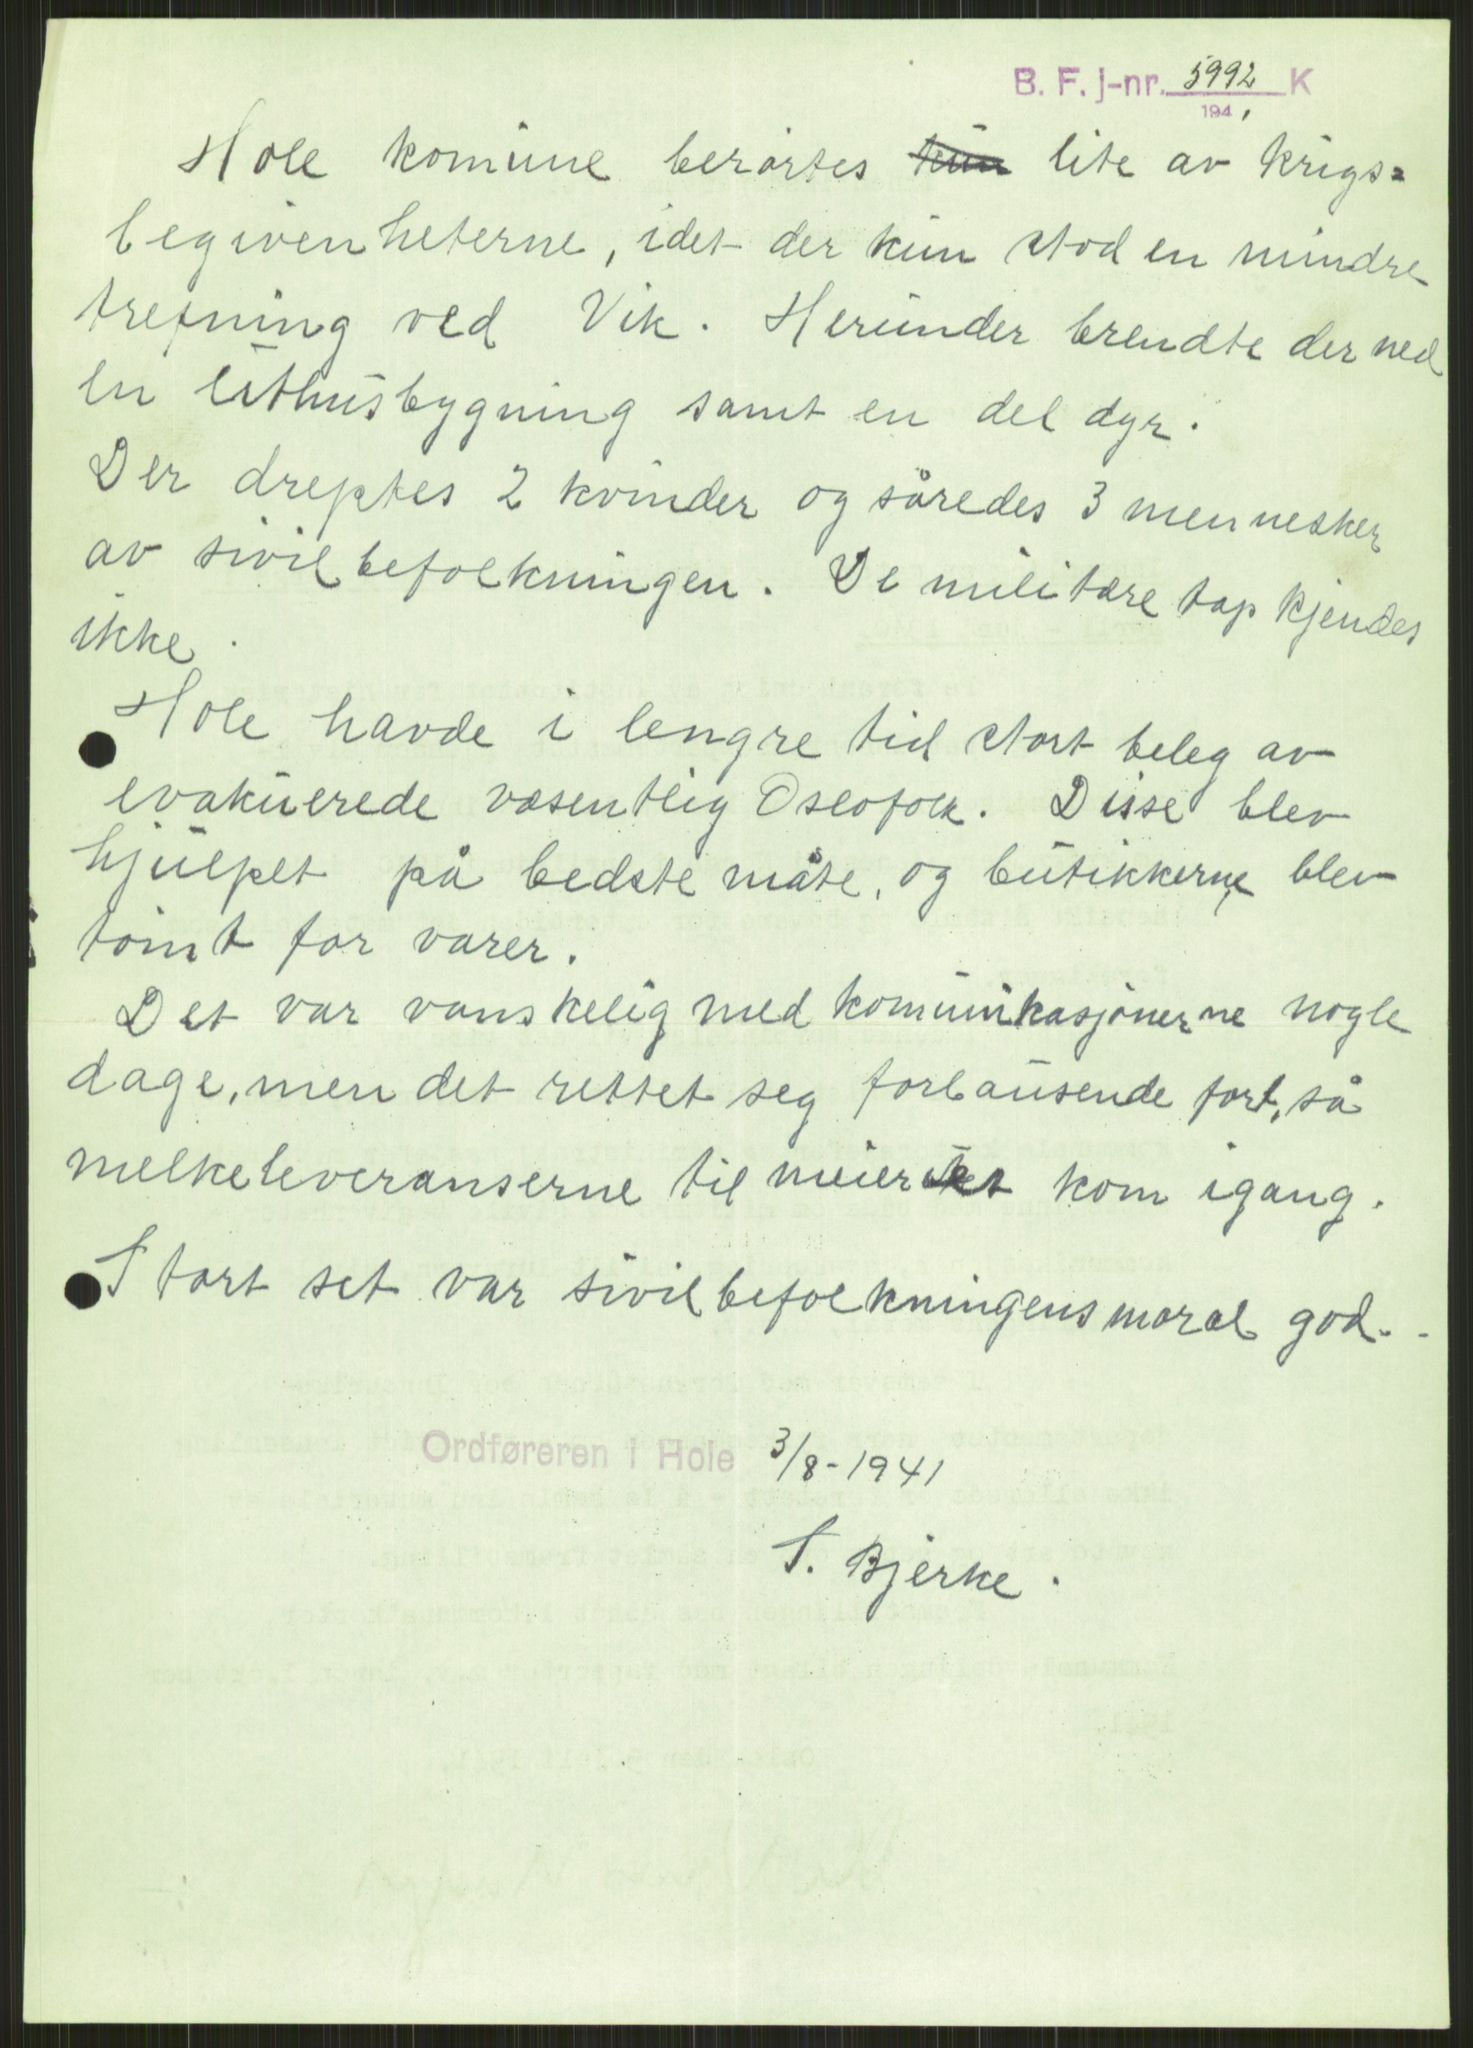 B. F. j-nr. 5992 K
1941
Hole komune berørtes kun lite av krigs=
begivenheterne, idet der kun stod en mindre
trefning ved Vik. Herunder brendte der ned
en uthusbygning samt en del dyr.
Der dreptes 2 kvinder og såredes 3 mennesker
av sivilbefolkningen. De militære tap kjendes
ikke.
Hole havde i lengre tid stort beleg av
evakuerede væsentlig Oslofolk. Disse blev
hjulpet på bedste måte, og butikkerne blev
tømt for varer.
Det var vanskelig med komunikasjonerne nogle
dage, men det rettet seg forbausende fort, så
melkeleveranserne til meieriet kom igang.
Stort set var sivilbefolkningens moral god. -
Ordføreren i Hole 3/8-1941
S. Bjerke.